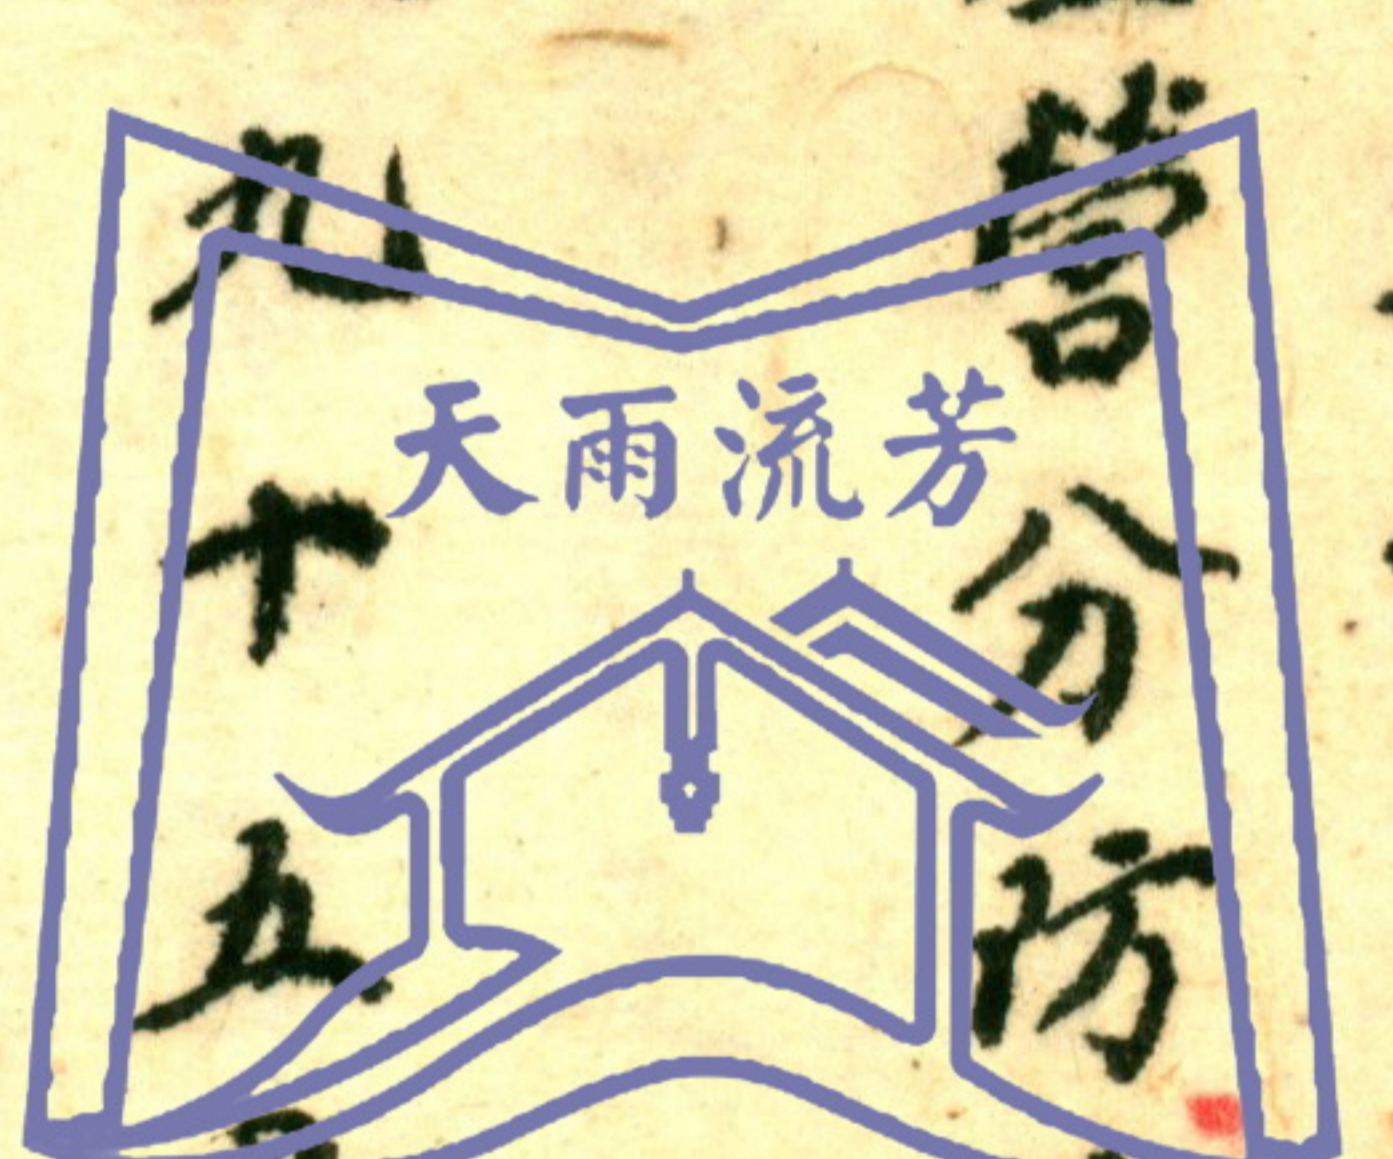 營分防
九十五
天雨流芳